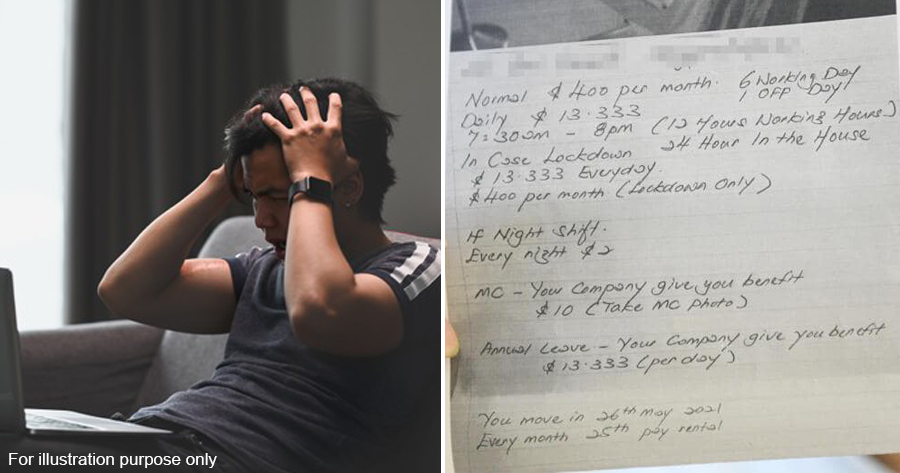 Normal $400 per month. 6 Working Day
1 OFF Day
Daily $13.333
7:30am - 8pm (12 Hours Working Hours)
In Case Lockdown 24 Hour In the House
$13.333 Everyday.
$400 per month (Lockdown Only)
If Night Shift.
Every night $2
MC - Your Company give you benefit
$10 (Take MC Photo)
Annual Leave - Your Company give you benefit
$13.333 (per day)
You move in 26th may 2021
Every month 25th pay rental
For illustration purpose only